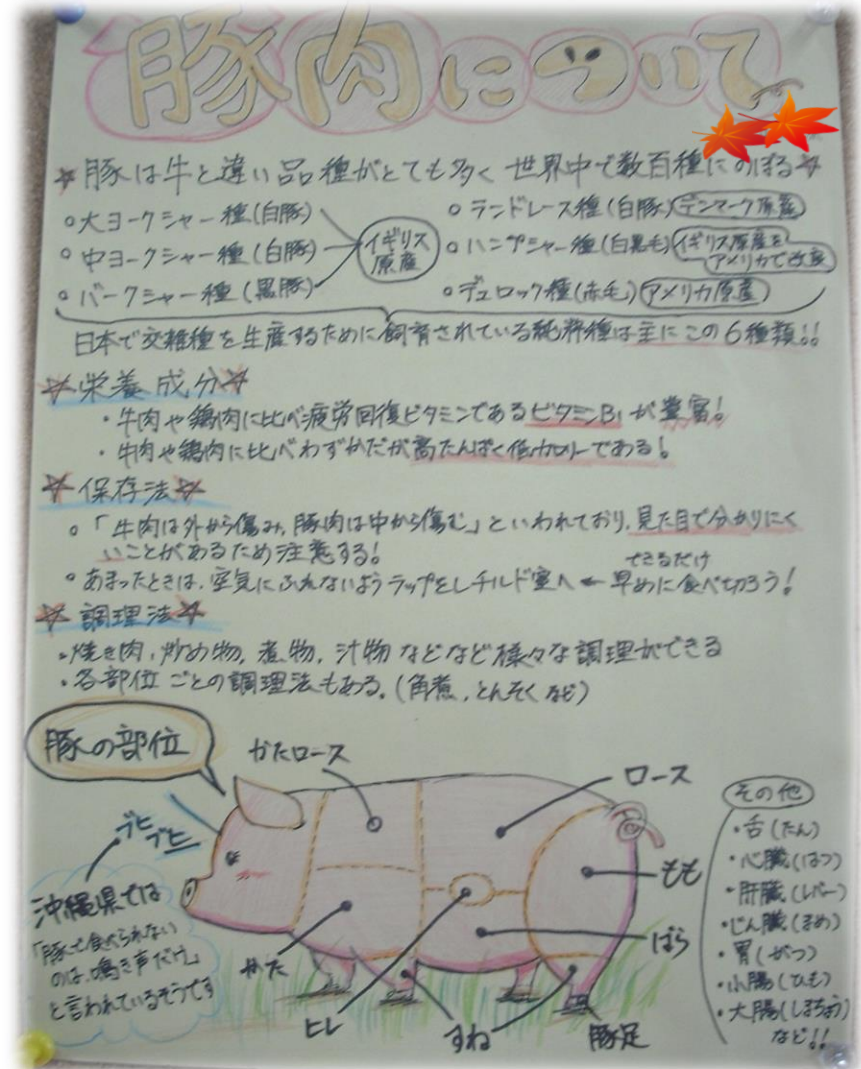 豚肉について
☆豚は牛と違い品種がとても多く世界中で数百種にのぼる☆
○大ヨークシャー種(白豚)
○中ヨークシャー種(白豚)
○バークシャー種(黒豚)
イギリス
原産
○ランドレース種(白豚)デンマーク原産
○ハンプシャー種(白黒毛)イギリス原産を
アメリカで改良
○デュロック種(赤毛)アメリカ原産
日本で交雑種を生産するために飼育されている純粋種は主にこの6種類!!
☆栄養成分☆
・牛肉や鶏肉に比べ疲労回復ビタミンであるビタミンB₁が豊富!
・牛肉や鶏肉に比べわずかだが高たんぱく低カロリーである!
☆保存法☆
○「牛肉は外から傷み、豚肉は中から傷む」といわれており、見た目で分かりにく
いことがあるため注意する!
できるだけ
○あまったときは、空気にふれないようラップをしチルド室へ←早めに食べ切ろう!
☆調理法☆
・焼き肉、炒め物、煮物、汁物などなど様々な調理ができる
・各部位ごとの調理法もある。(角煮、とんそくなど)
豚の部位
かたロース
ロース
もも
ばら
かた
ヒレ
すね
豚足
ブヒ
ブヒ
沖縄県では
「豚で食べられない
のは、鳴き声だけ」
と言われているそうです
その他
・舌(たん)
・心臓(はつ)
・肝臓(レバー)
・じん臓(まめ)
・胃(がつ)
・小腸(ひも)
・大腸(しろちょう)
など!!